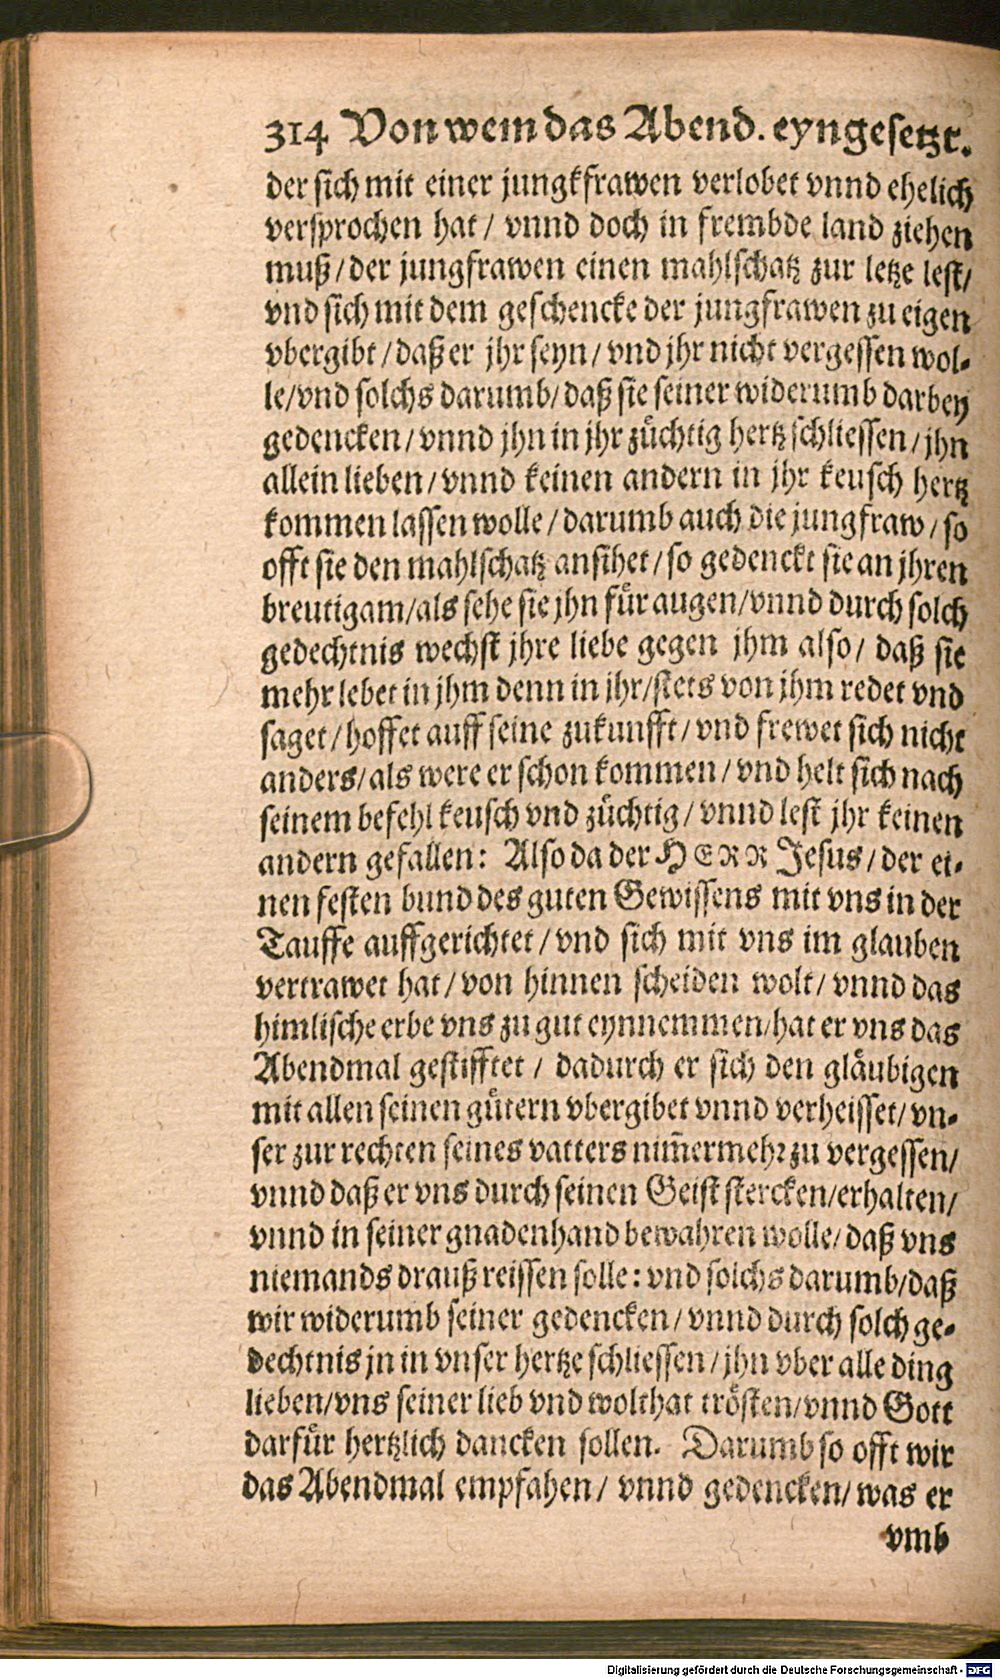 314 Von wem das Abend. eyngesetzt.
der sich mit einer jungkfrawen verlobet vnnd ehelich
versprochen hat / vnnd doch in frembde land ziehen
muß / der jungfrawen einen mahlschatz zur letze lest /
vnd sich mit dem geschencke der jungfrawen zu eigen
vbergibt / daß er jhr seyn / vnd jhr nicht vergessen wol-
le / vnd solchs darumb / daß sie seiner widerumb darbey
gedencken / vnnd jhn in jhr züchtig hertz schliessen / jhn
allein lieben / vnnd keinen andern in jhr keusch hertz
kommen lassen wolle / darumb auch die jungfraw / so
offt sie den mahlschatz ansihet / so gedenckt sie an jhren
breutigam / als sehe sie jhn für augen / vnnd durch solch
gedechtnis wechst jhre liebe gegen jhm also / daß sie
mehr lebet in jhm denn in jhr / stets von jhm redet vnd
saget / hoffet auff seine zukunfft / vnd frewet sich nicht
anders / als were er schon kommen / vnd helt sich nach
seinem befehl keusch vnd züchtig / vnnd lest jhr keinen
andern gefallen: Also da der HERR Jesus / der ei-
nen festen bund des guten Gewissens mit vns in der
Tauffe auffgerichtet / vnd sich mit vns im glauben
vertrawet hat / von hinnen scheiden wolt / vnnd das
himlische erbe vns zu gut eynnemmen / hat er vns das
Abendmal gestifftet / dadurch er sich den gläubigen
mit allen seinen gütern vbergibet vnnd verheisset / vn-
ser zur rechten seines vatters nim̄ermehr zu vergessen /
vnnd daß er vns durch seinen Geist stercken / erhalten /
vnnd in seiner gnadenhand bewahren wolle / daß vns
niemands drauß reissen solle: vnd solchs darumb / daß
wir widerumb seiner gedencken / vnnd durch solch ge-
dechtnis jn in vnser hertze schliessen / jhn vber alle ding
lieben / vns seiner lieb vnd wolthat trösten / vnnd Gott
darfür hertzlich dancken sollen. Darumb so offt wir
das Abendmal empfahen / vnnd gedencken / was er
vmb
Digitalisierung gefördert durch die Deutsche Forschungsgemeinschaft - DFG